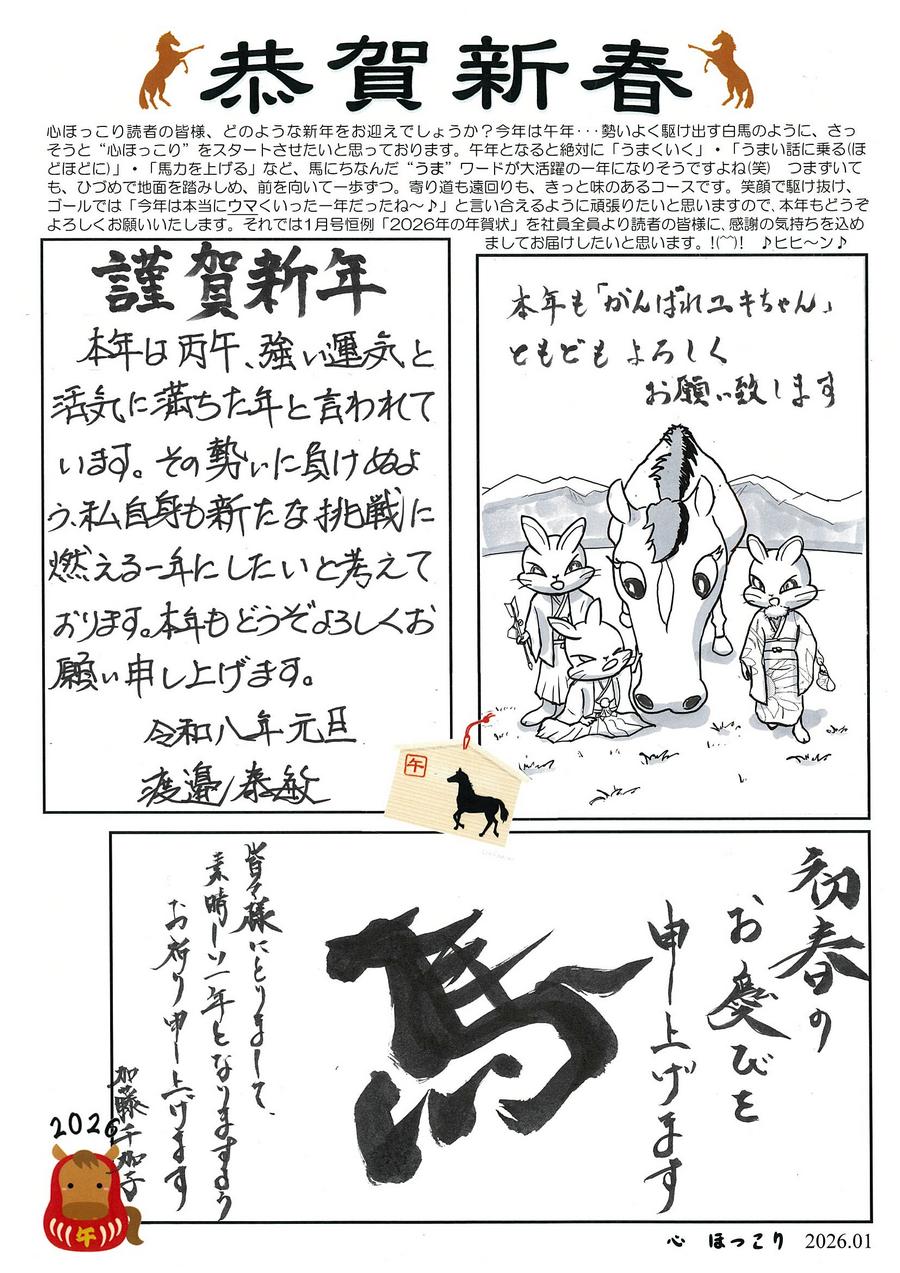 恭賀新春
心ほっこり読者の皆様、どのような新年をお迎えでしょうか？今年は午年･･･勢いよく駆け出す白馬のように、さっ
そうと“心ほっこり”をスタートさせたいと思っております。午年となると絶対に「うまくいく」・「うまい話に乗る(ほ
どほどに)」・「馬力を上げる」など、馬にちなんだ“うま”ワードが大活躍の一年になりそうですよね(笑)　つまずいて
も、ひづめで地面を踏みしめ、前を向いて一歩ずつ。寄り道も遠回りも、きっと味のあるコースです。笑顔で駆け抜け、
ゴールでは「今年は本当にウマくいった一年だったね～♪」と言い合えるように頑張りたいと思いますので、本年もどうぞ
よろしくお願いいたします。それでは1月号恒例「2026年の年賀状」を社員全員より読者の皆様に、感謝の気持ちを込め
ましてお届けしたいと思います。!(⌒)!　♪ヒヒ～ン♪
謹賀新年
本年は丙午、強い運気と
活気に満ちた年と言われて
います。その勢いに負けぬよ
う、私自身も新たな挑戦に
燃える一年にしたいと考えて
おります。本年もどうぞよろしくお
願い申し上げます。
令和八年元旦
渡邉春敏
本年も「がんばれユキちゃん」
ともども よろしく
お願い致します
午
初春の
お慶びを
申し上げます
馬
皆々様にとりまして、
素晴しい一年となりますよう
お祈り申し上げます
加藤千加子
2026
午
心 ほっこり 2026.01